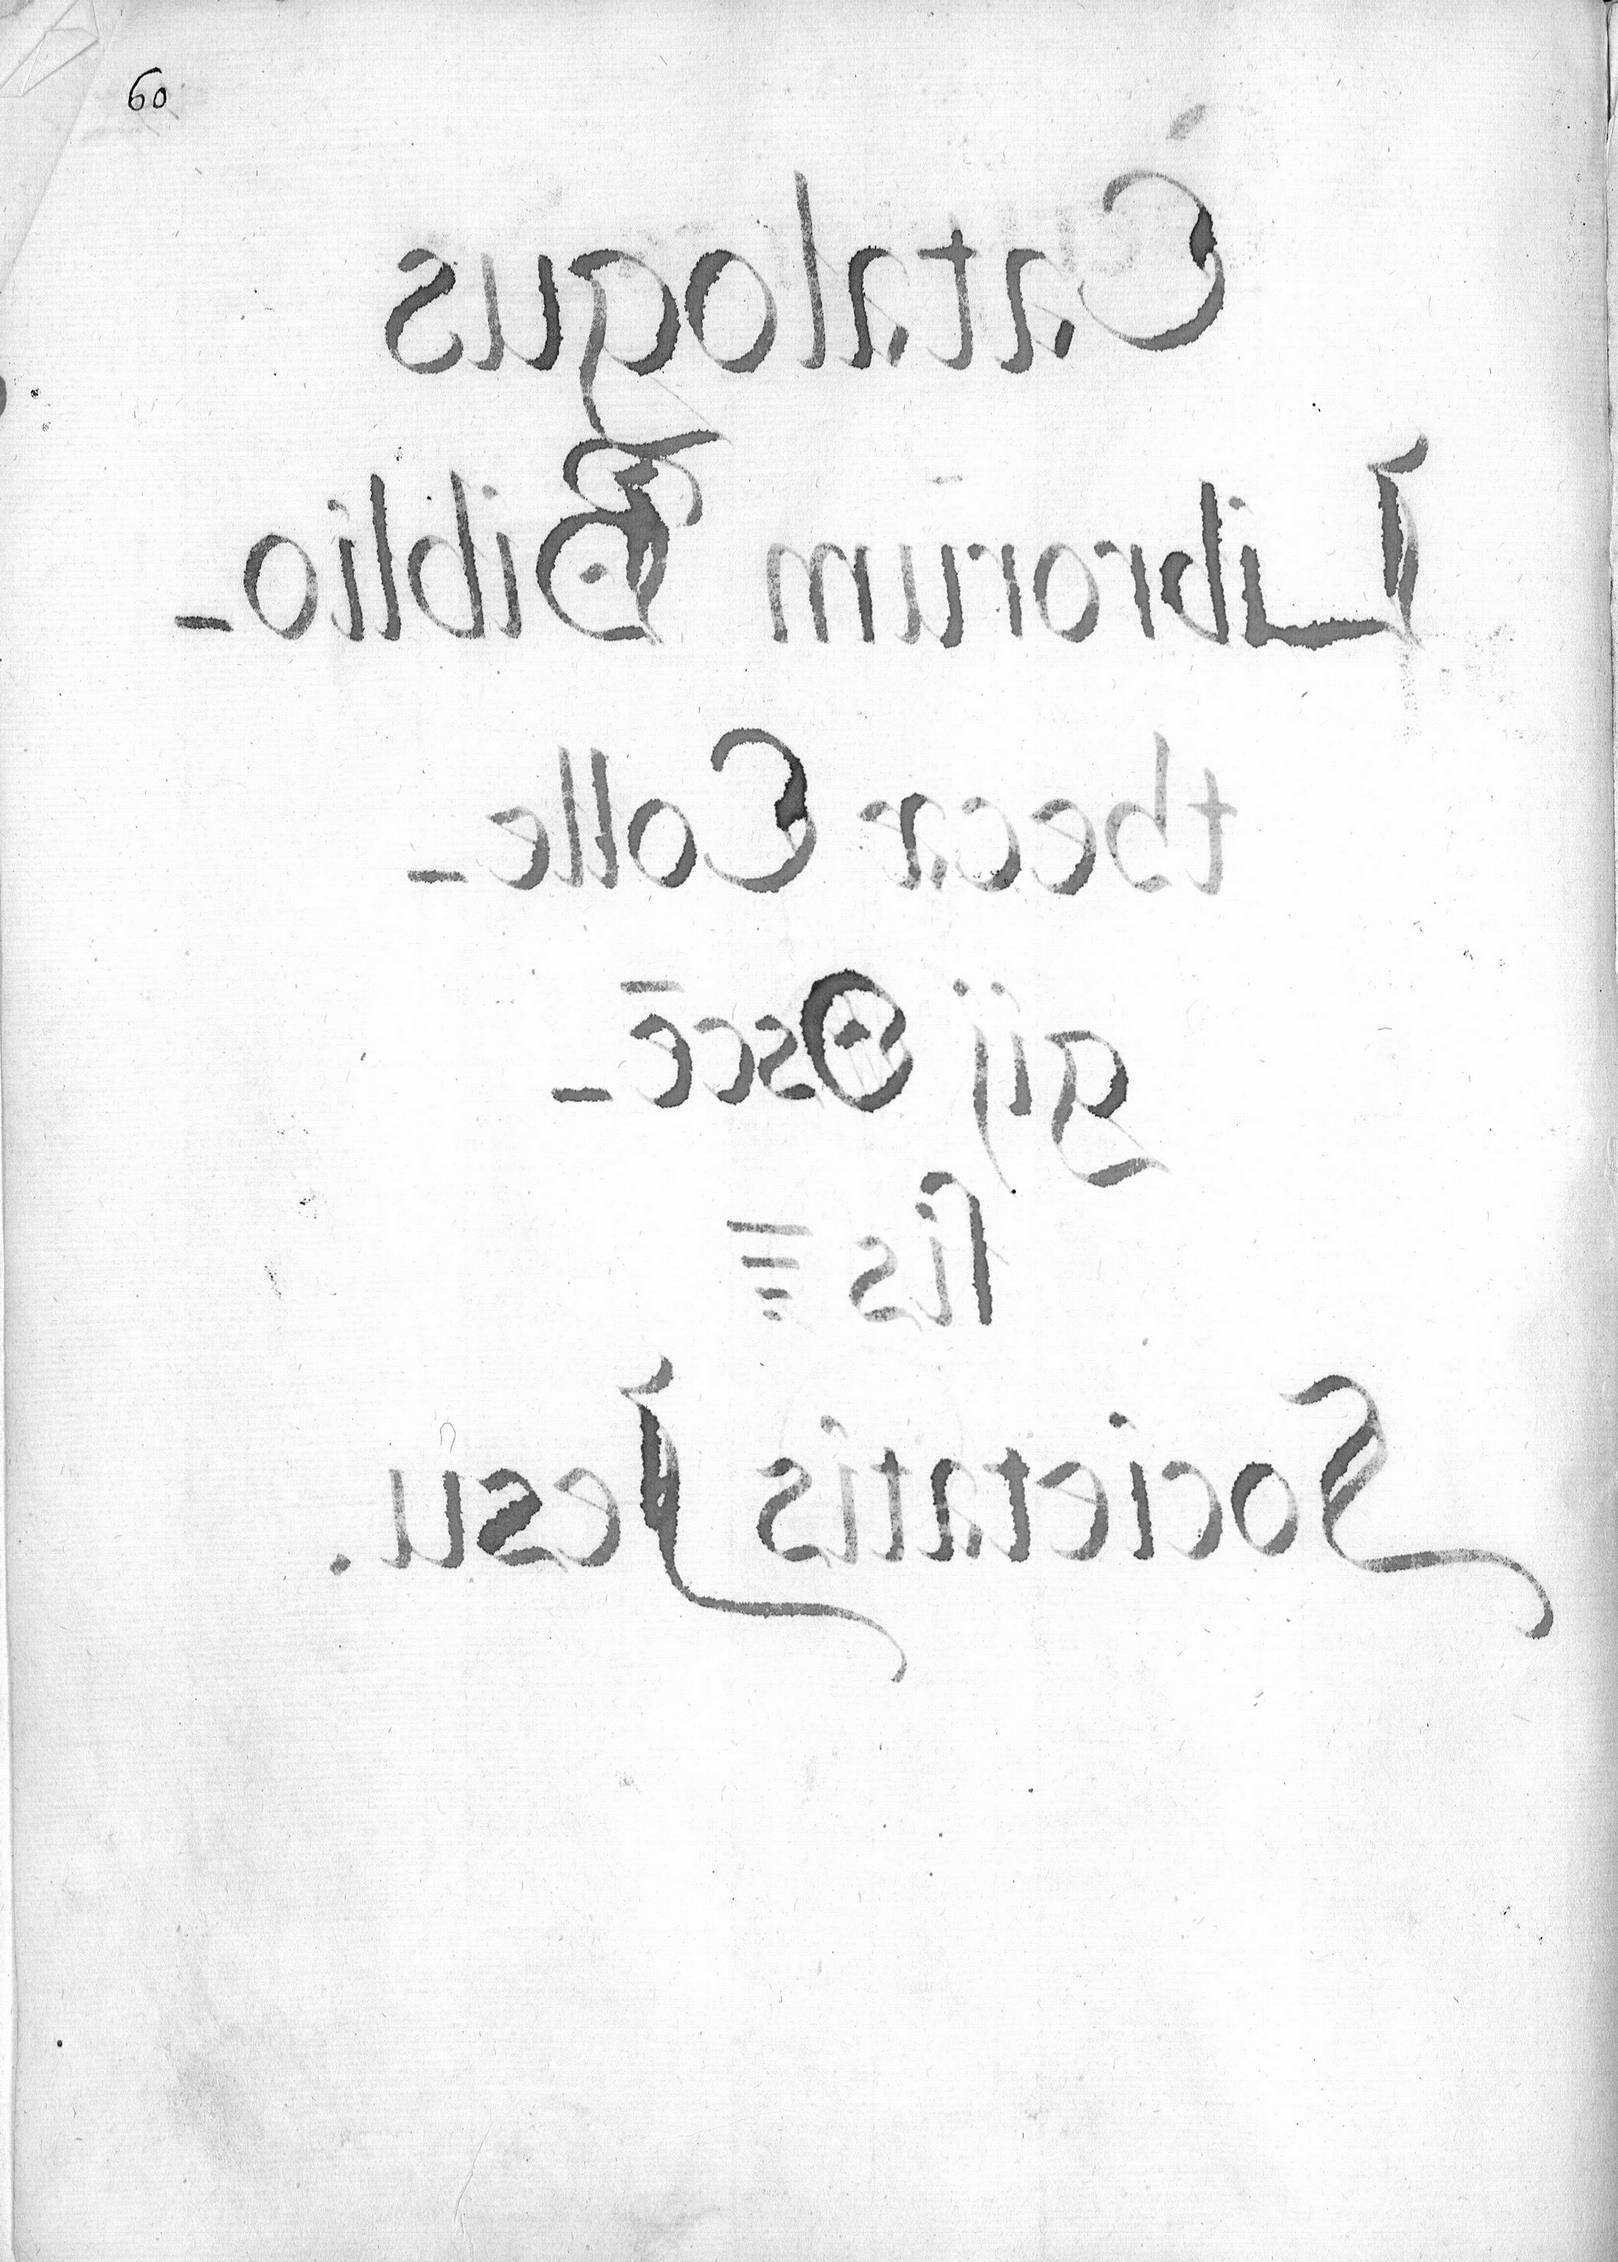 60
Catalogus
Librorum Biblio-
thecæ Colle-
gij Oscē-
sis
Societatis Iesu.